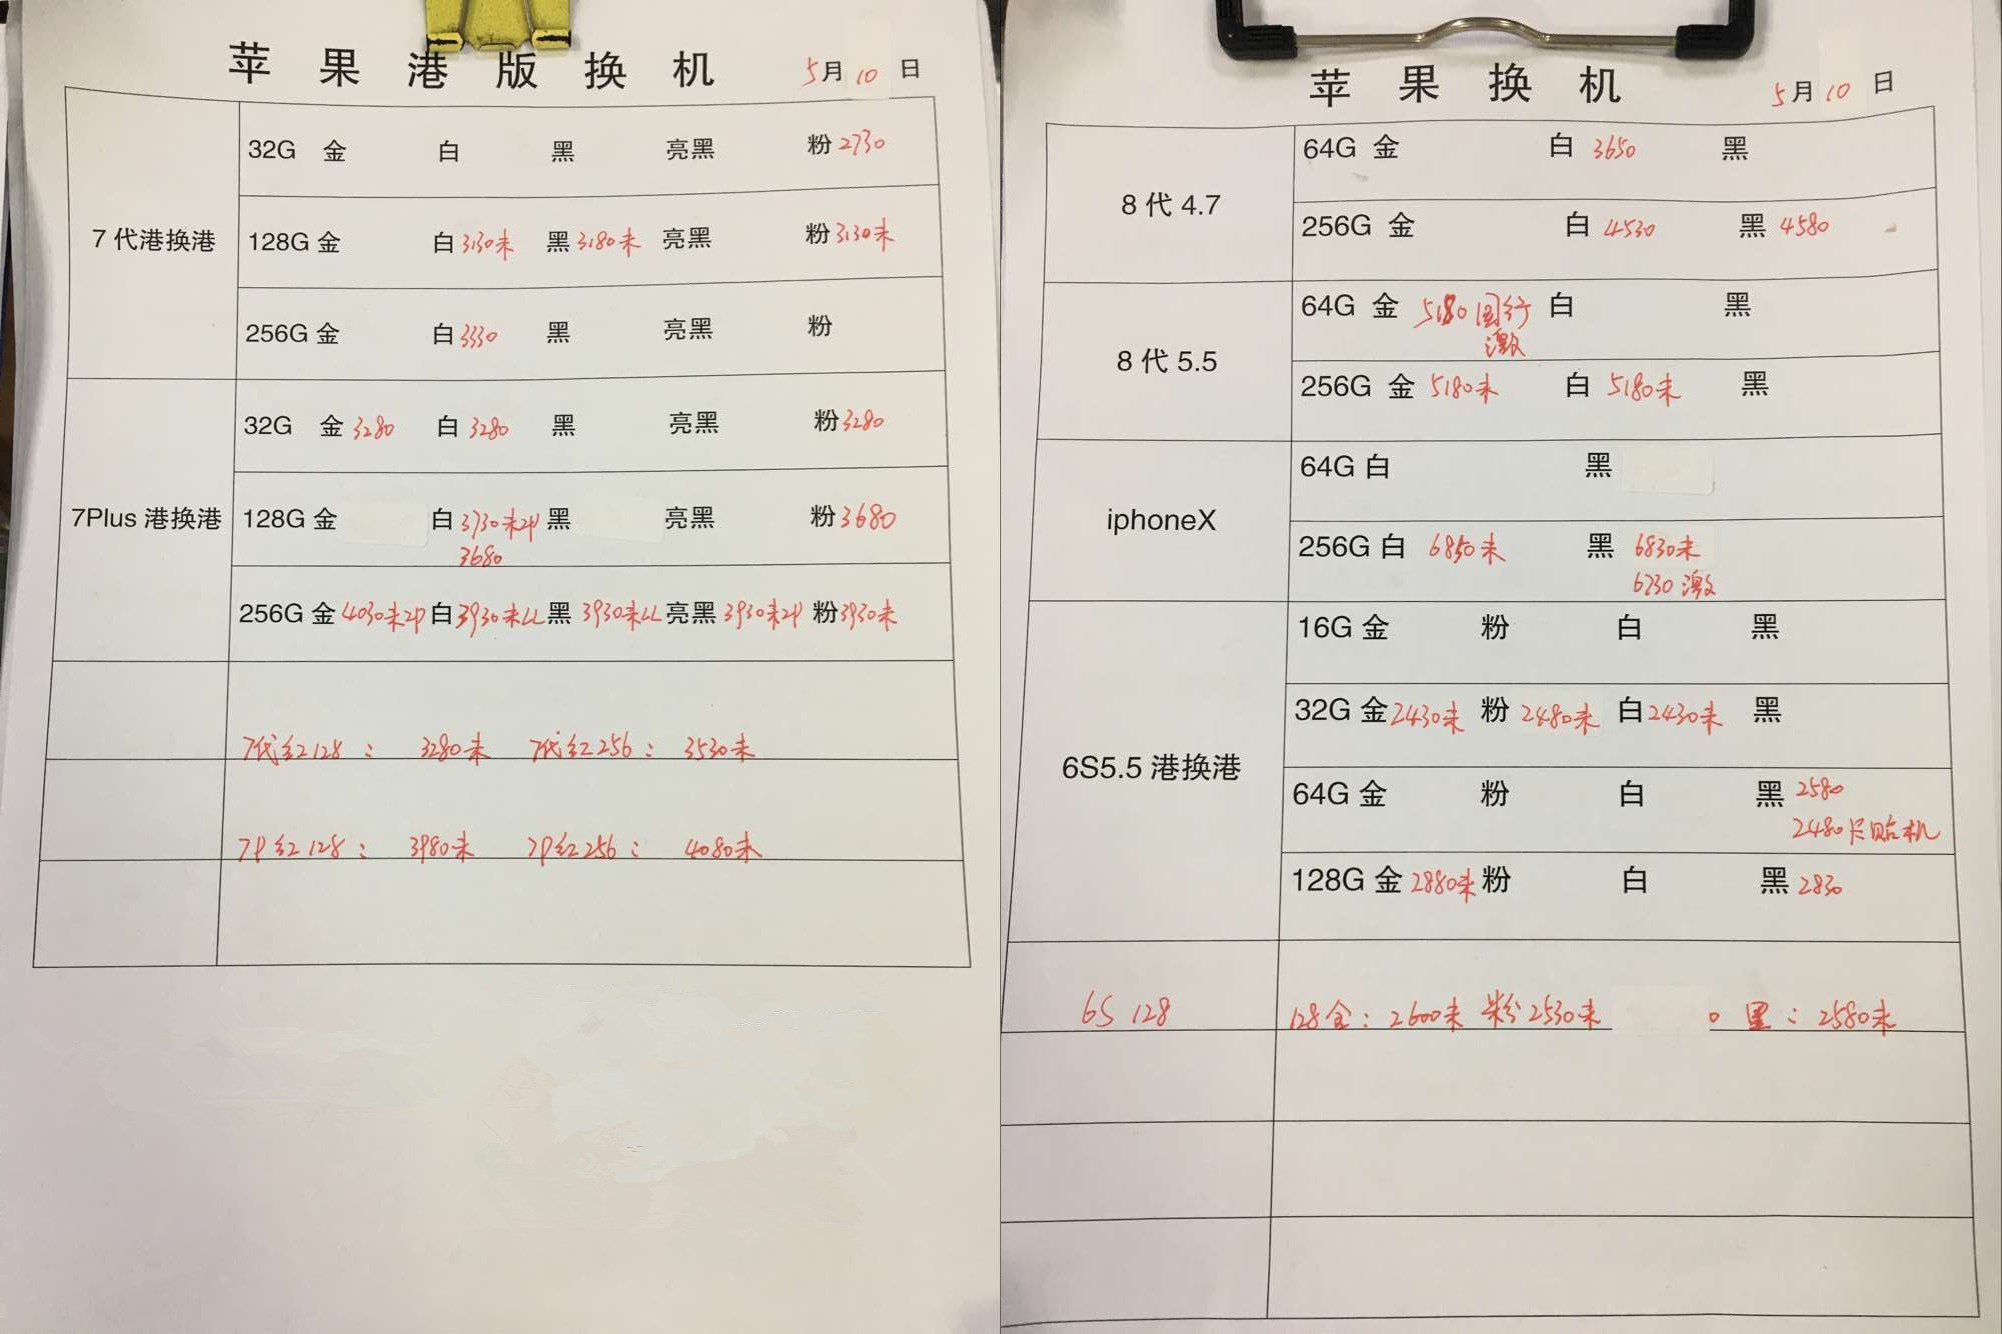 苹果港版换机 5月10日
32G 金 白 黑 亮黑 粉2730
7代港换港 128G金 白3130未 黑3180未 亮黑 粉3130未
256G金 白3330 黑 亮黑 粉
32G 金3280 白3280 黑 亮黑 粉3280
7Plus港换港 128G金 白3730未ZP 黑 亮黑 粉3680
3680
256G金4030未ZP 白3930未LL 黑3930未LL 亮黑3930未ZP 粉3930未
7代红128: 3280未 7代红256: 3530未
7P红128: 3980未 7P红256: 4080未
苹果换机 5月10日
8代4.7
64G 金 白 3650 黑
256G 金 白 4530 黑 4580
8代5.5
64G 金 5180国行 白 黑
激
256G 金 5180未 白 5180未 黑
iphoneX
64G白 黑
256G白 6850未 黑 6830未
6730激
6S5.5港换港
16G金 粉 白 黑
32G金2430未 粉2480未 白2430未 黑
64G金 粉 白 黑2580
2480卡贴机
128G金2880未 粉 白 黑2830
6S 128 128金: 2600未 粉2530未 0 黑: 2580未